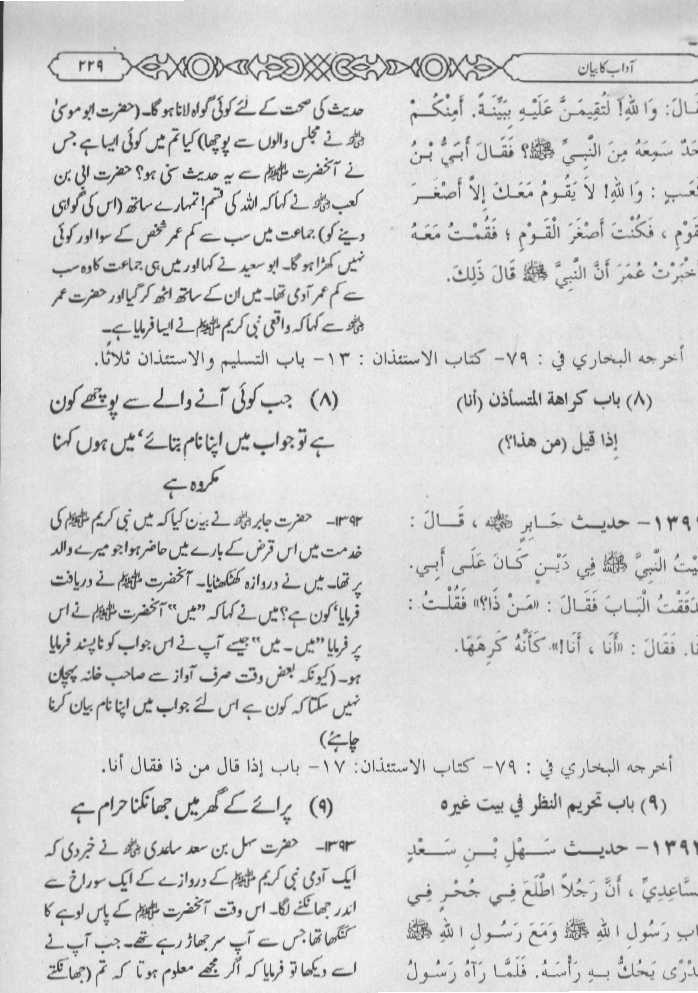 آداب کا بیان
۲۲۹
قَالَ: وَاللهِ! لَتُقِيمَنَّ عَلَيْهِ بِبَيِّنَةٍ. أَمِنْكُمْ
سَمِعَهُ مِنَ النَّبِيِّ ﷺ؟ فَقَالَ أُبَيُّ بْنُ
وَاللهِ! لاَ يَقُومُ مَعَكَ إِلاَّ أَصْغَرَ
، فَكُنْتُ أَصْغَرَ الْقَوْمِ ؛ فَقُمْتُ مَعَهُ
عُمَرَ أَنَّ النَّبِيَّ ﷺ قَالَ ذَلِكَ.
حدیث کی صحت کے لئے کوئی گواہ لانا ہو گا۔ (حضرت ابو موسیٰ
رضی اللہ عنہ نے مجلس والوں سے پوچھا) کیا تم میں کوئی ایسا ہے جس
نے آنحضرت ﷺ سے یہ حدیث سنی ہو؟ حضرت ابی بن
کعب رضی اللہ عنہ نے کہا کہ اللہ کی قسم! تمہارے ساتھ (اس کی گواہی
دینے کو) جماعت میں سب سے کم عمر شخص کے سوا اور کوئی
نہیں کھڑا ہو گا۔ ابو سعید نے کہا اور میں ہی جماعت کا وہ سب
سے کم عمر آدمی تھا۔ میں ان کے ساتھ اٹھ کر گیا اور حضرت عمر
رضی اللہ عنہ سے کہا کہ واقعی نبی کریم ﷺ نے ایسا فرمایا ہے۔
أخرجه البخاري في : ٧٩- كتاب الاستئذان : ١٣- باب التسليم والاستئذان ثلاثًا.
(٨) باب كراهة المتسأذن (أنا)
إذا قيل (من هذا؟)
(۸) جب کوئی آنے والے سے پوچھے کون
ہے تو جواب میں اپنا نام بتائے‘ میں ہوں کہنا
مکروہ ہے
حدیث جَابِرٍ رضی اللہ عنہ ، قَالَ :
النَّبِيَّ ﷺ فِي دَيْنٍ كَانَ عَلَى أَبِي.
فَدَقَقْتُ الْبَابَ فَقَالَ : «مَنْ ذَا؟» فَقُلْتُ :
أَنَا. فَقَالَ : «أَنَا ، أَنَا!» كَأَنَّهُ كَرِهَهَا.
۱۳۹۲- حضرت جابر رضی اللہ عنہ نے بیان کیا کہ میں نبی کریم ﷺ کی
خدمت میں اس قرض کے بارے میں حاضر ہوا جو میرے والد
پر تھا۔ میں نے دروازہ کھٹکھٹایا۔ آنحضرت ﷺ نے دریافت
فرمایا‘ کون ہے؟ میں نے کہا کہ ”میں“ آنحضرت ﷺ نے اس
پر فرمایا ”میں۔ میں“ جیسے آپ نے اس جواب کو ناپسند فرمایا
ہو۔ (کیونکہ بعض وقت صرف آواز سے صاحب خانہ پہچان
نہیں سکتا کہ کون ہے اس لئے جواب میں اپنا نام بیان کرنا
چاہئے)
أخرجه البخاري في : ٧٩- كتاب الاستئذان: ١٧- باب إذا قال من ذا فقال أنا.
(٩) باب تحريم النظر في بيت غيره
(۹) پرائے کے گھر میں جھانکنا حرام ہے
حدیث سَهْلِ بْنِ سَعْدٍ
السَّاعِدِيِّ ، أَنَّ رَجُلاً اطَّلَعَ فِي جُحْرٍ فِي
بَابِ رَسُولِ اللهِ ﷺ وَمَعَ رَسُولِ اللهِ ﷺ
مِدْرًى يَحُكُّ بِهِ رَأْسَهُ. فَلَمَّا رَآهُ رَسُولُ
۱۳۹۳- حضرت سہل بن سعد ساعدی رضی اللہ عنہ نے خبر دی کہ
ایک آدمی نبی کریم ﷺ کے دروازے کے ایک سوراخ سے
اندر جھانکنے لگا۔ اس وقت آنحضرت ﷺ کے پاس لوہے کا
کنگھا تھا جس سے آپ سر جھاڑ رہے تھے۔ جب آپ نے
اسے دیکھا تو فرمایا کہ اگر مجھے معلوم ہوتا کہ تم (جھانکتے